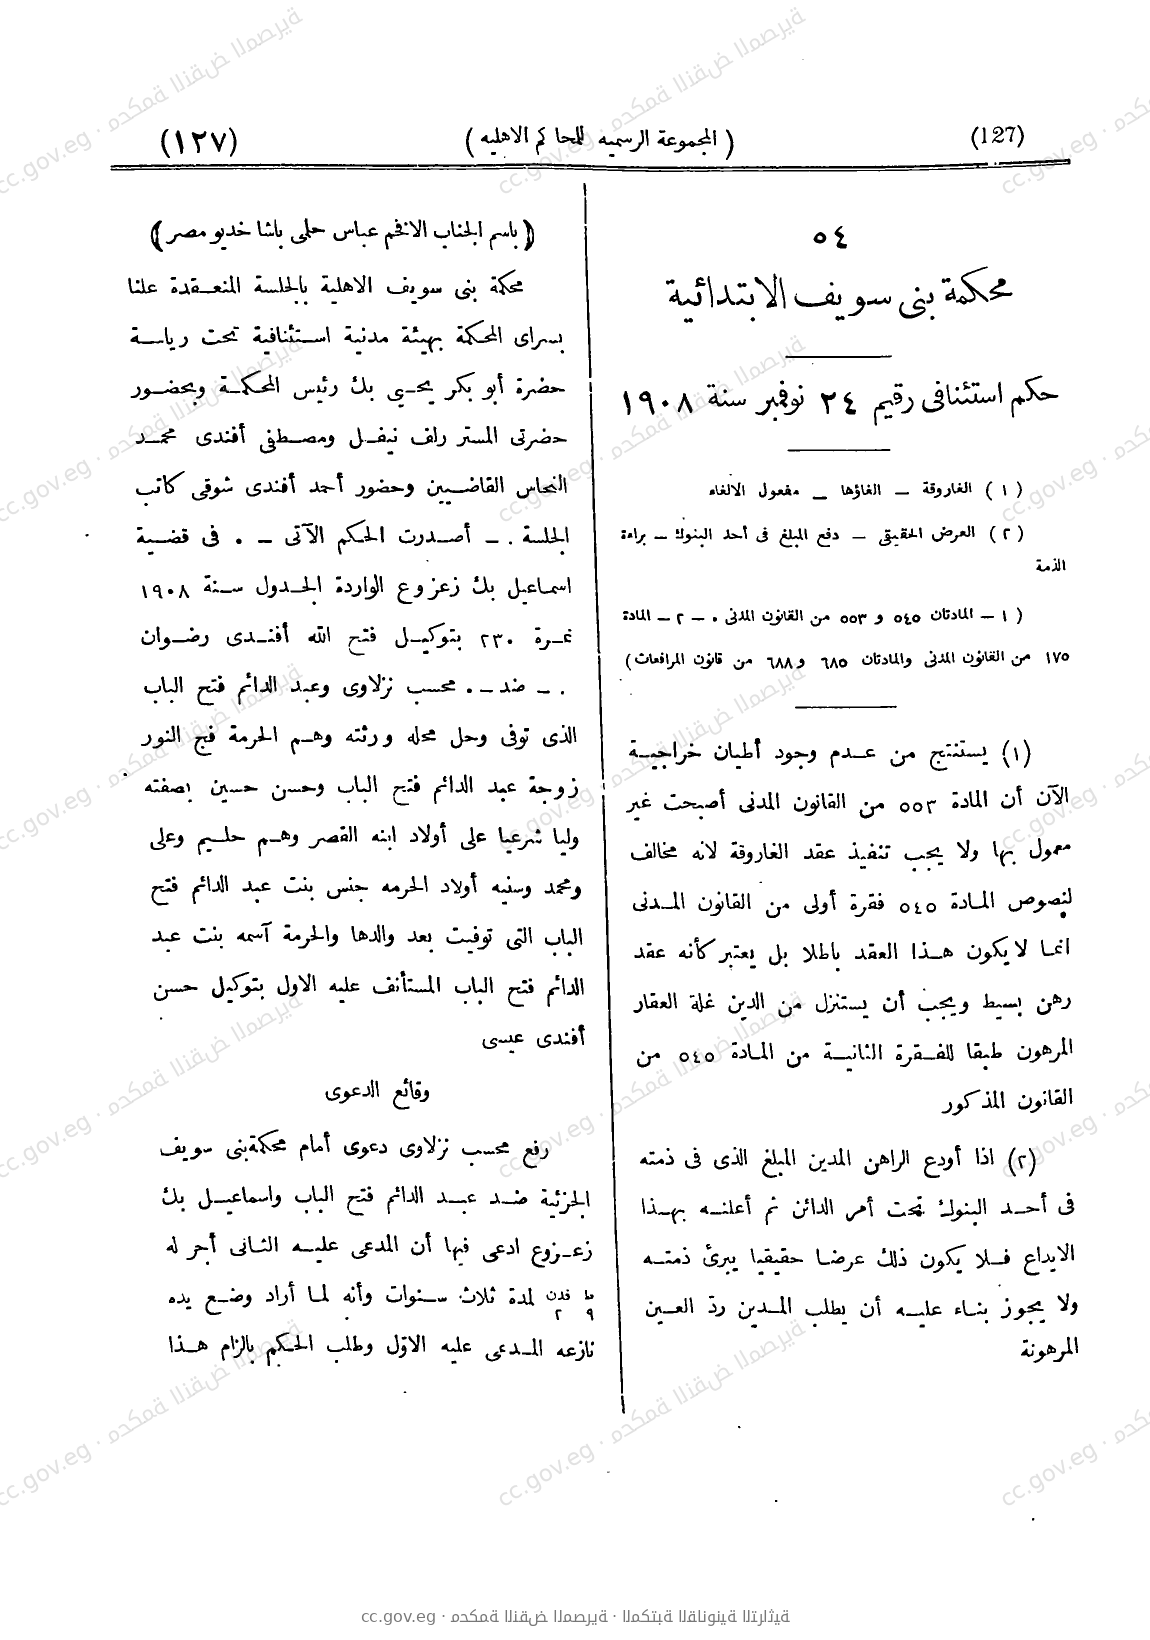 (127)
( المجموعة الرسمية للمحاكم الاهليه )
(١٢٧)
٥٤
محكمة بنى سويف الابتدائية
حكم استئنافى رقيم ٢٤ نوفمبر سنة ١٩٠٨
( ١ ) الغاروقة – الغاؤها – مفعول الالغاء
( ٢ ) العرض الحقيقى – دفع المبلغ فى أحد البنوك – براءة
الذمة
( ١ – المادتان ٥٤٥ و ٥٥٣ من القانون المدنى ٠ – ٢ – المادة
١٧٥ من القانون المدنى والمادتان ٦٨٥ و٦٨٨ من قانون المرافعات )
(١) يستنتج من عدم وجود أطيان خراجية
الآن أن المادة ٥٥٣ من القانون المدنى أصبحت غير
معمول بها ولا يجب تنفيذ عقد الغاروقة لانه مخالف
لنصوص المادة ٥٤٥ فقرة أولى من القانون المدنى
انما لا يكون هذا العقد باطلا بل يعتبر كأنه عقد
رهن بسيط ويجب أن يستنزل من الدين غلة العقار
المرهون طبقا للفقرة الثانية من المادة ٥٤٥ من
القانون المذكور
(٢) اذا أودع الراهن المدين المبلغ الذى فى ذمته
فى أحد البنوك تحت أمر الدائن ثم أعلنه بهذا
الايداع فلا يكون ذلك عرضا حقيقيا يبرئ ذمته
ولا يجوز بناء عليه أن يطلب المدين ردّ العين
المرهونة
( باسم الجناب الافخم عباس حلمى باشا خديو مصر )
محكمة بنى سويف الاهلية بالجلسة المنعقدة علنا
بسراى المحكمة بهيئة مدنية استئنافية تحت رياسة
حضرة أبو بكر يحيى بك رئيس المحكمة وبحضور
حضرتى المستر رالف نيفل ومصطفى أفندى محمد
النحاس القاضيين وحضور أحمد أفندى شوقى كاتب
الجلسة . – أصدرت الحكم الآتى – ٠ فى قضية
اسماعيل بك زعزوع الواردة الجدول سنة ١٩٠٨
نمرة ٢٣٠ بتوكيل فتح الله أفندى رضوان
. – ضد – . محسب نزلاوى وعبد الدائم فتح الباب
الذى توفى وحل محله ورثته وهم الحرمة فج النور
زوجة عبد الدائم فتح الباب وحسن حسين بصفته
وليا شرعيا على أولاد ابنه القصر وهم حليم وعلى
ومحمد وسنيه أولاد الحرمه جنس بنت عبد الدائم فتح
الباب التى توفيت بعد والدها والحرمة آسمه بنت عبد
الدائم فتح الباب المستأنف عليه الاول بتوكيل حسن
أفندى عيسى
وقائع الدعوى
رفع محسب نزلاوى دعوى أمام محكمة بنى سويف
الجزئية ضد عبد الدائم فتح الباب واسماعيل بك
زعزوع ادعى فيها أن المدعى عليه الثانى أجر له
ط فدن لمدة ثلاث سنوات وأنه لما أراد وضع يده
٩ ٢
نازعه المدعى عليه الاوّل وطلب الحكم بالزام هذا
cc.gov.eg · محكمة النقض المصرية · المكتبة القانونية التراثية